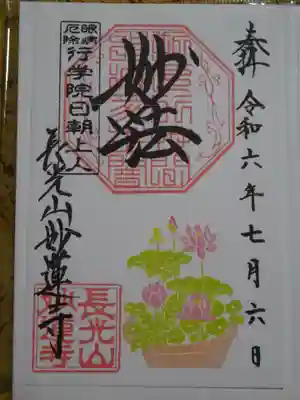 奉拝
令和六年七月六日
妙法
眼病
厄除
行学院日朝上人
長光山妙蓮寺
長光山
妙蓮寺